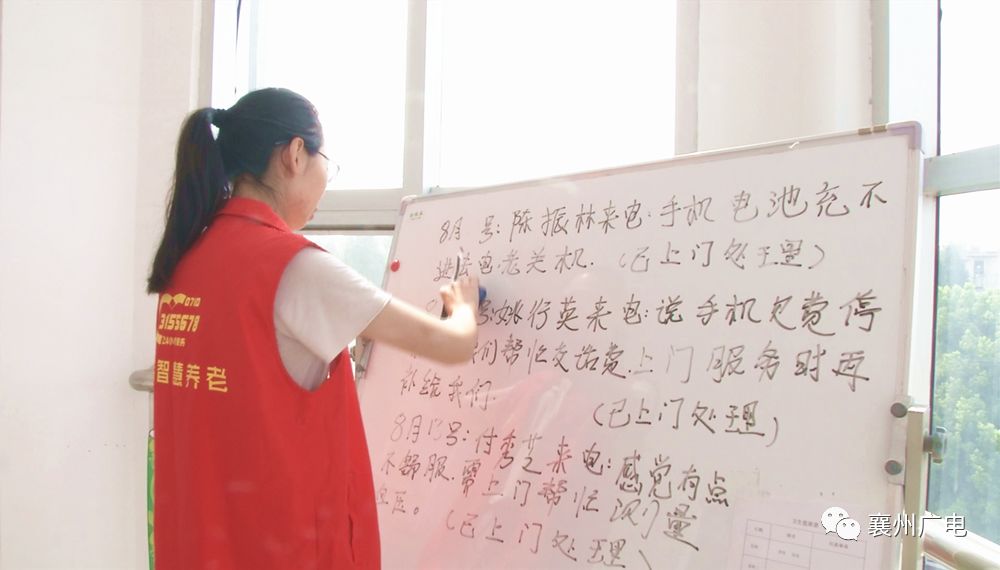 8月 号:陈振林来电:手机电池充不
进去电老关机.(已上门处理)
号:姚行英来电:说手机欠费停
们帮忙交话费上门服务时再
给我们.
(已上门处理)
8月 号:付秀芝来电:感觉有点
不舒服.需上门帮忙测量
血压。(已上门处理)
0710
3155678
24小时服务
智慧养老
襄州广电